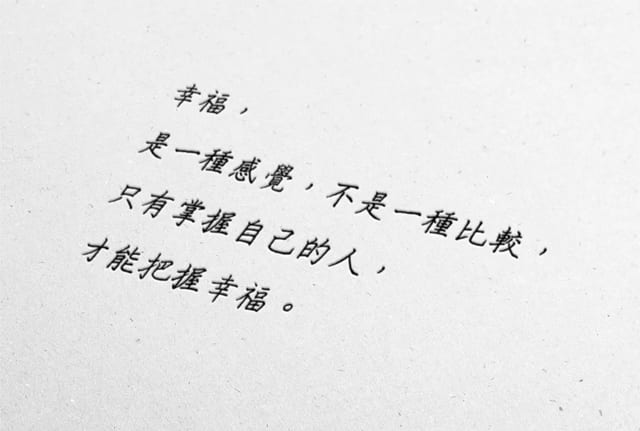 幸福，
是一種感覺，不是一種比較，
只有掌握自己的人，
才能把握幸福。